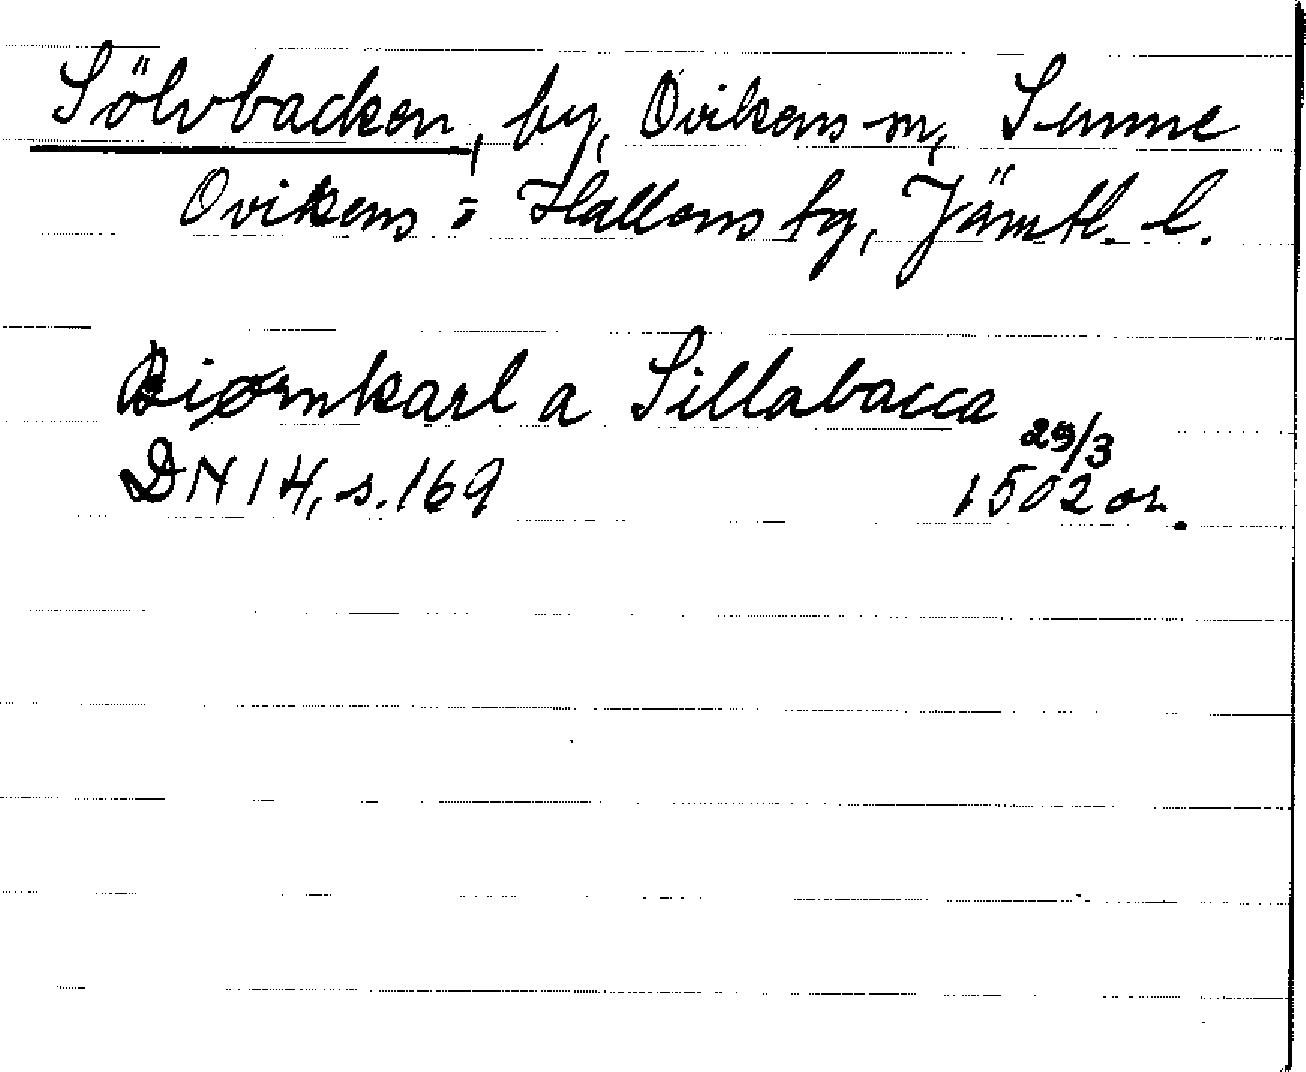 Sölvbacken, by, Ovikens sn, Sunne
Ovikens o Hallens tg, Jämtl. l.
Biørnkarl a Sillabacca
29/3
DN 14, s. 169 1502 or.